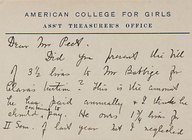 AMERICAN COLLEGE FOR GIRLS
ASS'T TREASURER'S OFFICE
Dear Mr Peet.
Did you present the bill
of 3½ liras to Mr
? This is the amount
he has paid annually & I think he
should pay. He owes 1½ liras for
II Sem. of last year but I neglected